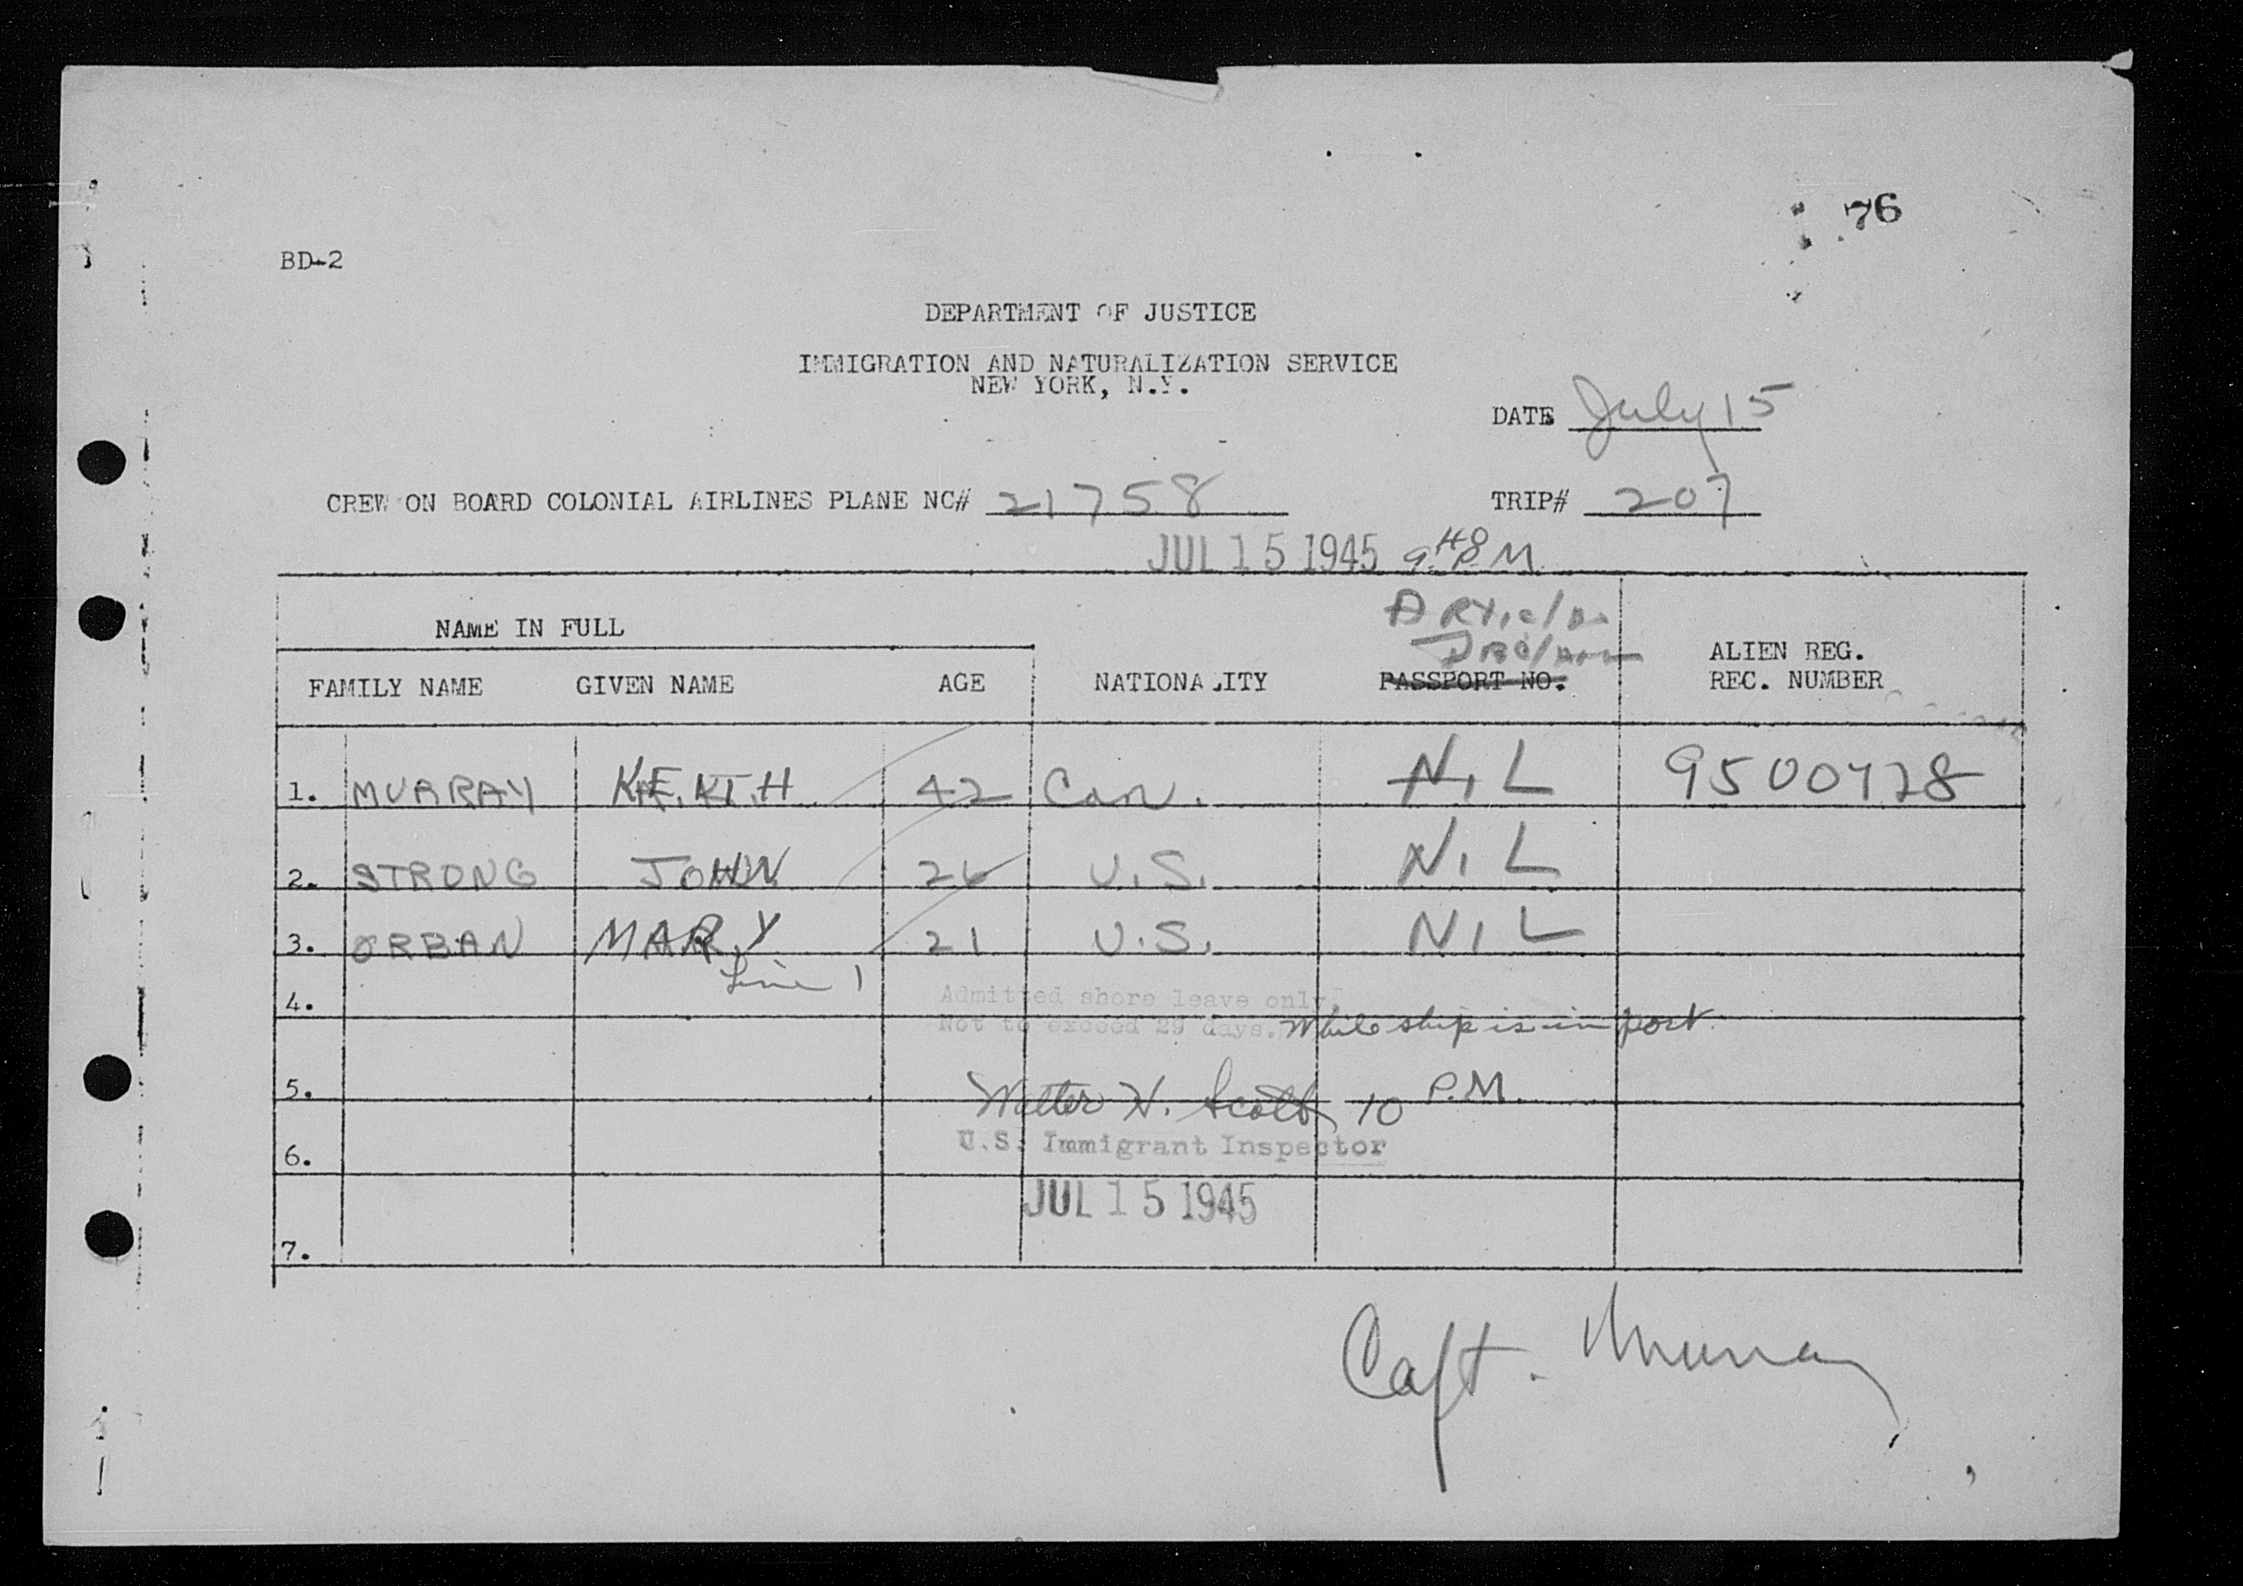 76
BD-2
DEPARTMENT OF JUSTICE
IMMIGRATION AND NATURALIZATION SERVICE
NEW YORK, N.Y.
DATE July 15
CREW ON BOARD COLONIAL AIRLINES PLANE NC# 21758 TRIP# 207
JUL 15 1945 9 40 P.M.
NAME IN FULL
FAMILY NAME GIVEN NAME AGE NATIONALITY PASSPORT NO. ALIEN REG. REC. NUMBER
1. MURRAY KEITH 42 Can. NIL 9500428
2. STRONG JOHN 26 U.S. NIL
3. ORBAN MARY 21 U.S. NIL
Line 1
4. Admitted shore leave only.
Not to exceed 29 days. While ship is in port.
5. Walter H. Scott 10 P.M.
6. U.S. Immigrant Inspector
JUL 15 1945
7.
Capt. Murray